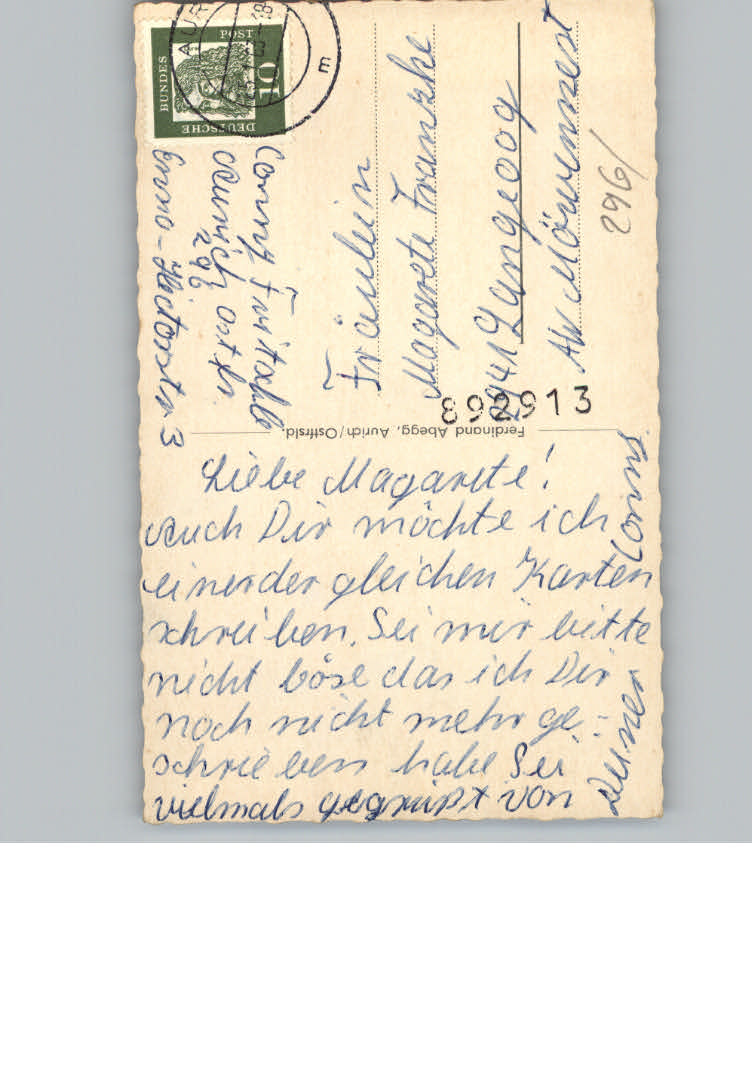 DEUTSCHE
BUNDES
POST
10
AUR
-18
m
Conny Fritsche
Aurich Ostfr.
296
Enno-Hectorstr 3
Fräulein
Magarete Franzke
2941 Langeoog
Am Möwennest
296/
892913
Ferdinand Abegg, Aurich/Ostfrsld.
Liebe Magarete!
Auch Dir möchte ich
einer der gleichen Karten
schreiben. Sei mir bitte
nicht böse das ich Dir
noch nicht mehr ge-
schrieben habe Sei
vielmals gegrüßt von
Deiner
Conny